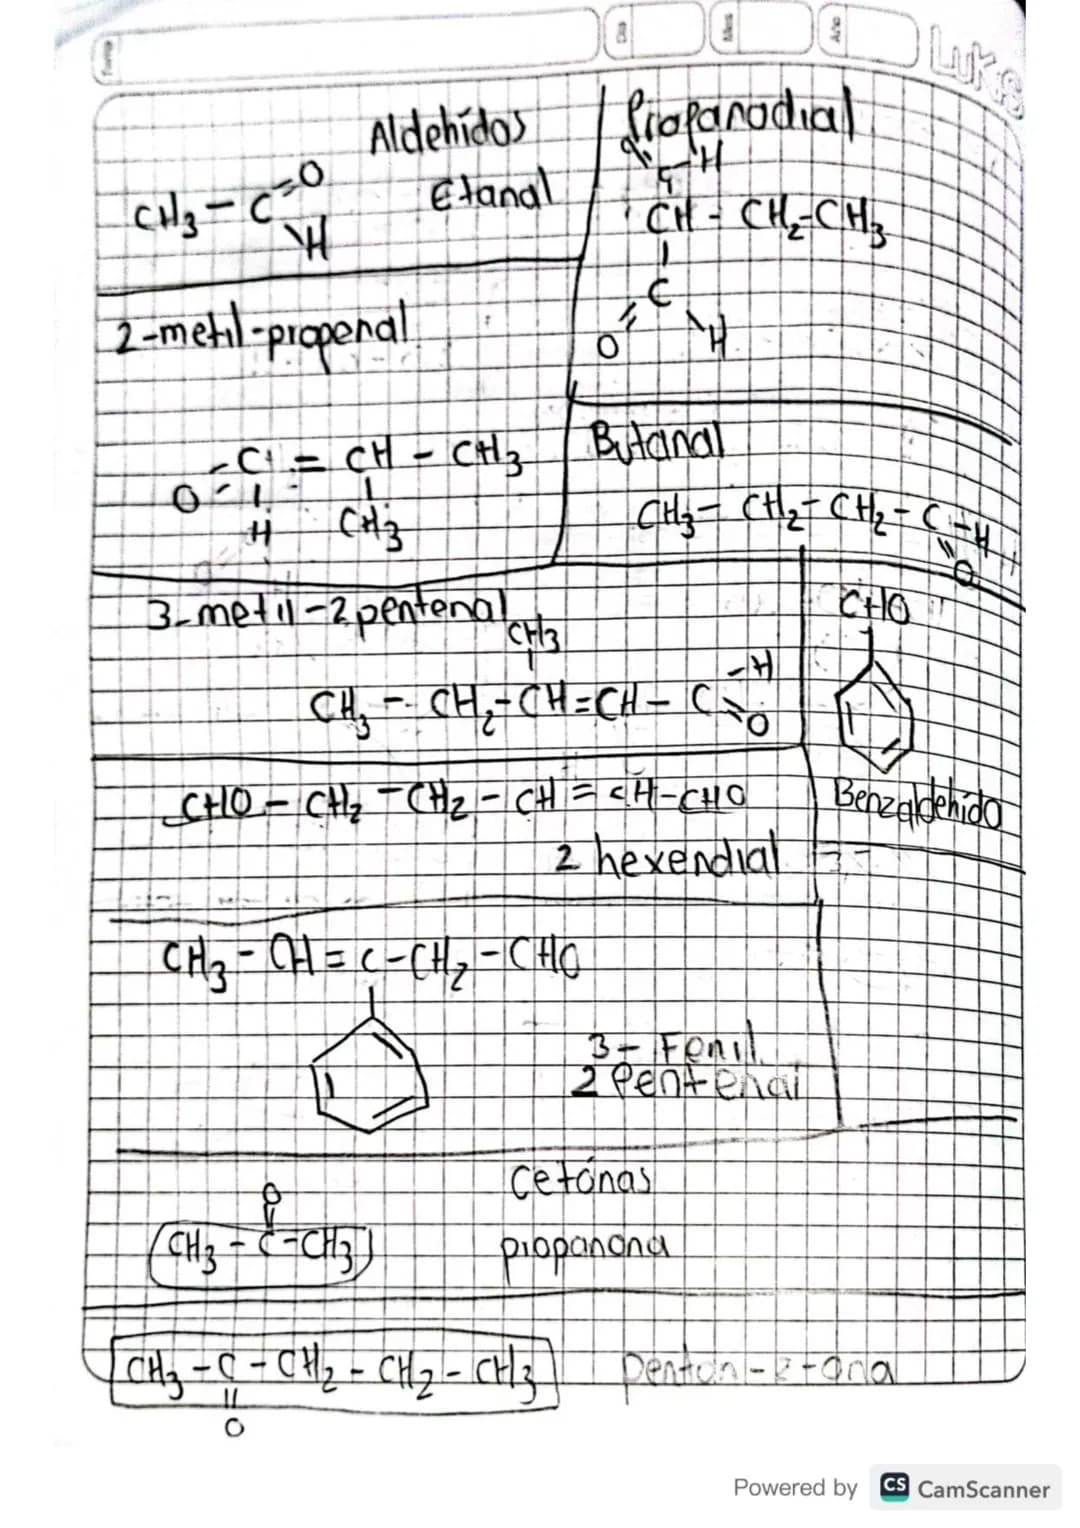 Tema
Día Mes Año
LUK's
Aldehídos
CH3 - C =O
\H
Etanal
Propanodial
O=C-H
CH - CH2-CH3
C
O H
2-metil-propenal
-C = CH - CH3
O
H CH3
Butanal
CH3 - CH2 - CH2 - C - H
O
3-metil-2pentenal
CH3
CH3 - CH2-CH=CH - C -H
=O
CHO
Benzaldehido
CHO - CH2 - CH2 - CH = CH-CHO
2 hexendial
CH3 - CH = C - CH2 - CHO
3- Fenil
2 Pentenal
Cetónas
O
CH3 - C - CH3
propanona
CH3 - C - CH2 - CH2 - CH3
O
pentan-2-ona
Powered by CS CamScanner